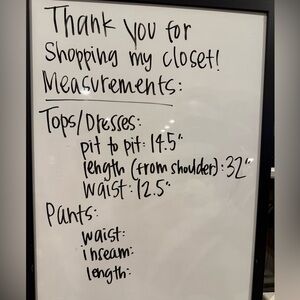 Thank you for
Shopping my closet!
Measurements:
Tops/Dresses:
pit to pit: 14.5"
length (from shoulder): 32"
waist: 12.5"
Pants:
waist:
inseam:
length: